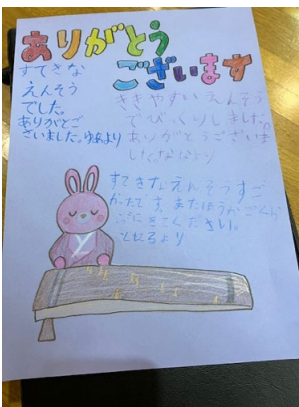 ありがとう
ございます
すてきな
えんそう
でした。
ありがとご
ざいました。ゆあより
ききやすいえんそう
でびっくりしました。
ありがとうございま
した。ななより
すてきなえんそうすご
かったです。またほうかごくら
ぶにきてください。
より